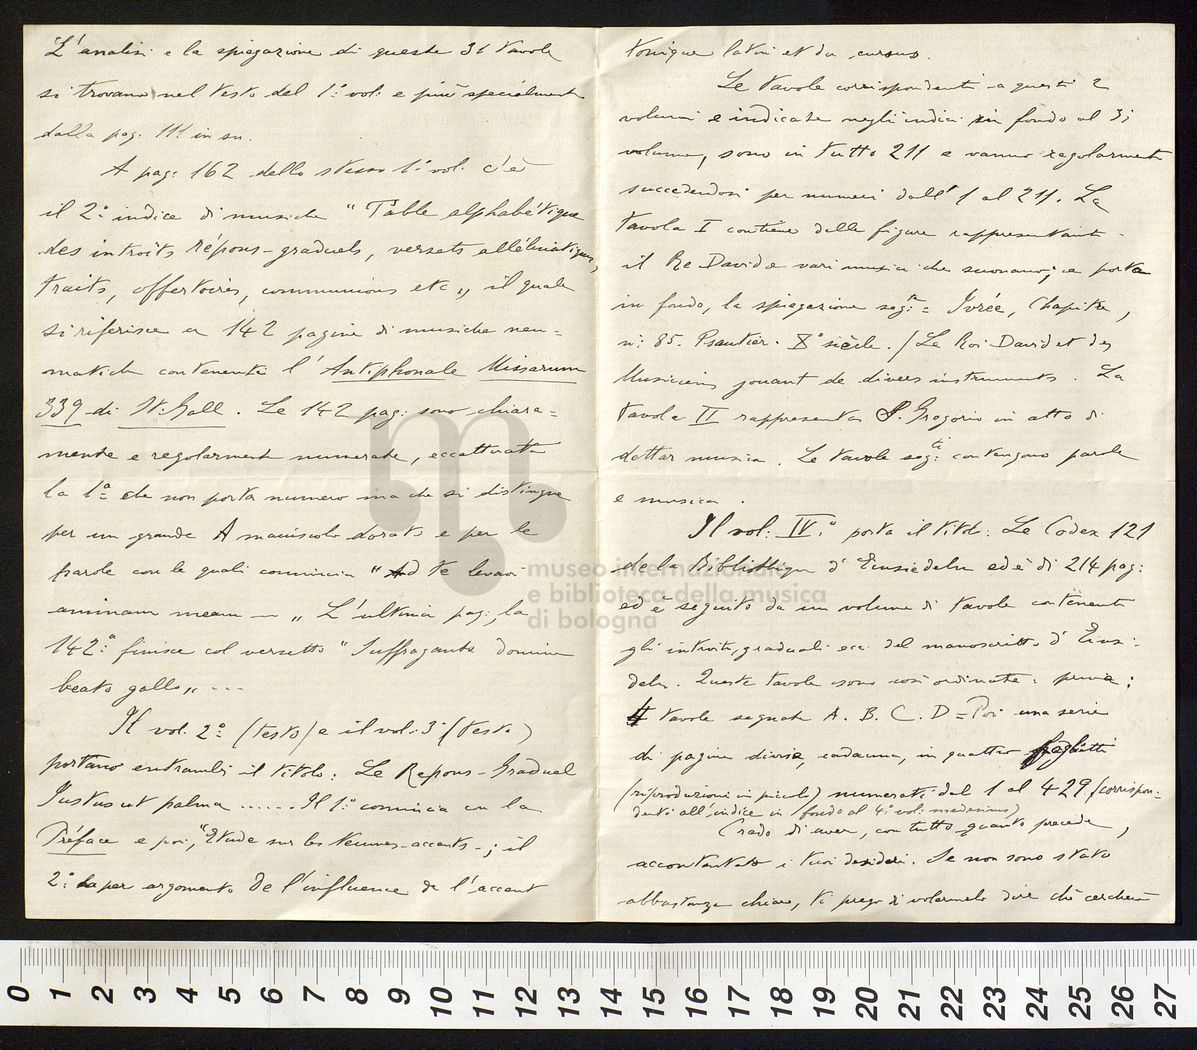 L'analisi e la spiegazione di queste 31 tavole
si trovano nel testo del 1º vol: e più specialmente
dalla pag: 111 in su.
A pag: 162 dello stesso 1º vol: c'è
il 2º indice di musiche "Table alphabétique
des introits répons-graduels, versets alléluiatiques,
traits, offertoires, communions etc„ il quale
si riferisce a 142 pagine di musiche neu=
matiche contenenti l'Antiphonale Missarum
339 di St. Gall. Le 142 pag: sono chiara=
mente e regolarmente numerate, eccettuata
la 1ª che non porta numero ma che si distingue
per un grande A maiuscolo dorato e per le
parole con le quali comincia "Ad te levavi
animam meam — „ L'ultima pag:, la
142ª finisce col versetto "Suffragante domine
beato gallo„ ...
Il vol. 2º (testo) e il vol: 3º (testo)
portano entrambi il titolo: Le Repons-Gradual
Justus ut palma ...... Il 1º comincia con la
Préface e poi, "Etude sur les Neumes-accents-; il
2º ha per argomento De l'influence de l'accent
tonique latin et du cursus.
Le tavole corrispondenti a questi 2
volumi e indicate negli indici in fondo al 3º
volume, sono in tutto 211 e vanno regolarmente
succedendosi per numeri dall'1 al 211. La
tavola I contiene delle figure rappresentanti
il Re David e vari musici che suonano; e porta
in fondo, la spiegazione seg:te = Ivrée, Chapitre,
n: 85. Psautier. Xº siècle. / Le Roi David et des
Musiciens jouant de divers instruments. La
tavola II rappresenta S. Gregorio in atto di
dettar musica. Le tavole seg:ti contengono parole
e musica.
Il vol: IVº porta il titolo: Le Codex 121
de la Bibliothèque d'Einsiedeln ed è di 214 pag:
ed è seguito da un volume di tavole contenenti
gli introiti, graduali ecc. del manoscritto d'Einsi-
deln. Queste tavole sono così ordinate: prima:
4 tavole segnate A. B. C. D = Poi una serie
di pagine divise, cadauna, in quattro foglietti
(riproduzioni in piccolo) numerati dal 1 al 429 (corrispon=
denti all'indice in fondo al 4º vol: medesimo)
Credo di aver, con tutto quanto precede,
accontentato i tuoi desideri. Se non sono stato
abbastanza chiaro, ti prego di volermelo dire chè cercherò
museo internazionale
e biblioteca della musica
di bologna
0 1 2 3 4 5 6 7 8 9 10 11 12 13 14 15 16 17 18 19 20 21 22 23 24 25 26 27